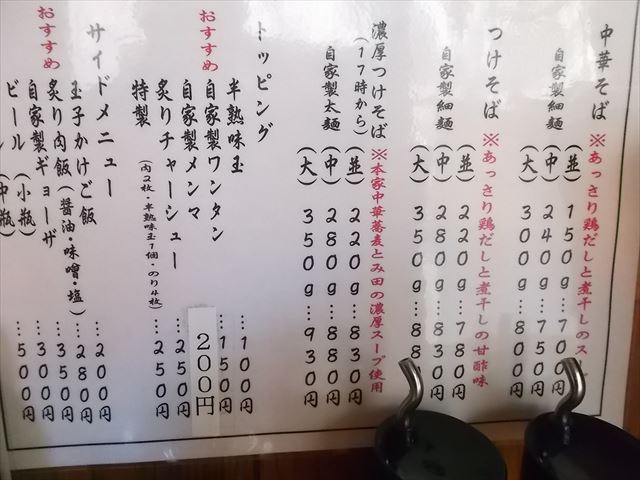 中華そば ※あっさり鶏だしと煮干しのス
自家製細麺
(並) 150g…700
(中) 240g…750円
(大) 300g…800円
つけそば ※あっさり鶏だしと煮干しの甘酢味
自家製細麺
(並) 220g…780
(中) 280g…830円
(大) 350g…88
濃厚つけそば ※本家中華蕎麦とみ田の濃厚スープ使用
(17時から)
自家製太麺
(並) 220g…830円
(中) 280g…880円
(大) 350g…930円
トッピング
半熟味玉 …100円
おすすめ 自家製ワンタン …150円
自家製メンマ 200円
炙りチャーシュー …250円
特製 (肉2枚・半熟味玉1個・のり4枚) …250円
サイドメニュー
玉子かけご飯 …200円
おすすめ 炙り肉飯(醤油・味噌・塩) …280円
自家製ギョーザ …350円
ビール (小瓶) …300円
(中瓶) …500円